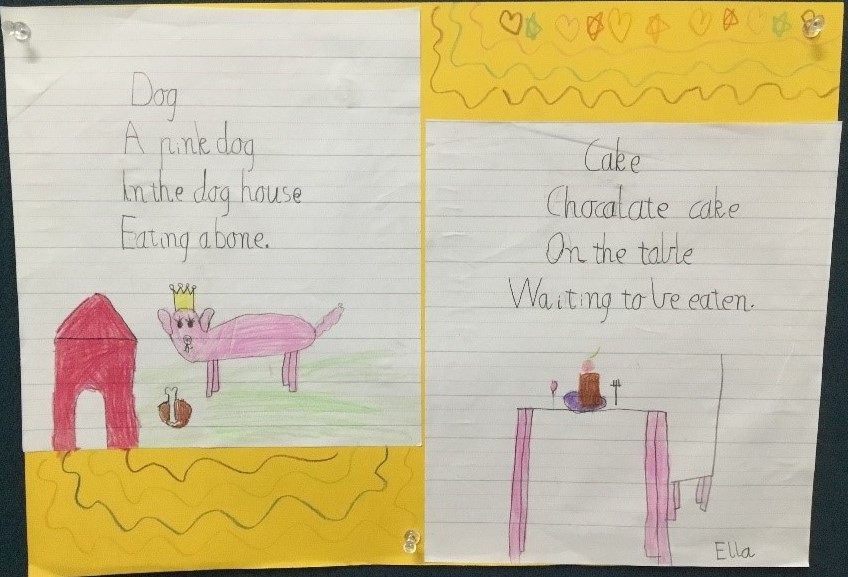 Dog
A pink dog
In the dog house
Eating a bone.
Cake
Chocalate cake
On the table
Waiting to be eaten.
Ella